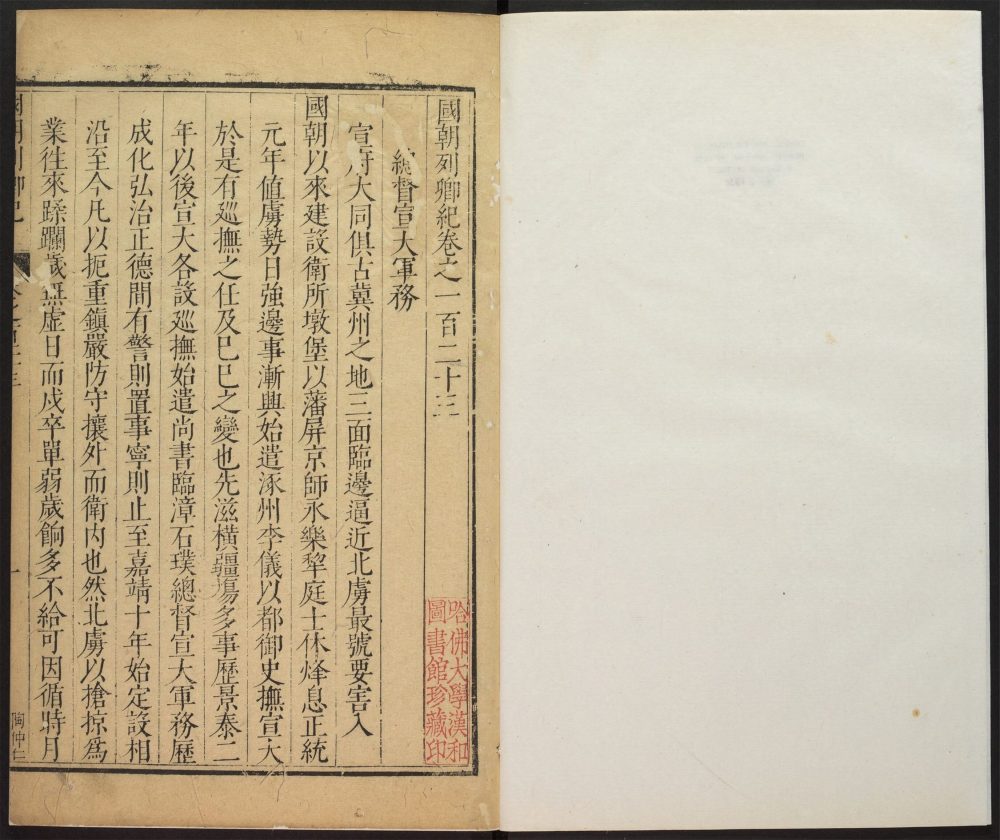 國朝列卿紀卷之一百二十三
總督宣大軍務
宣府大同俱古冀州之地三面臨邊逼近北虜最號要害入
國朝以來建設衛所墩堡以藩屏京師永樂犂庭士休烽息正統
元年值虜勢日強邊事漸興始遣涿州李儀以都御史撫宣大
於是有廵撫之任及巳巳之變也先滋橫疆塲多事歷景泰二
年以後宣大各設廵撫始遣尚書臨漳石璞總督宣大軍務歷
成化弘治正德間有警則置事寧則止至嘉靖十年始定設相
沿至今凡以扼重鎮嚴防守攘外而衛内也然北虜以搶掠爲
業徃來蹂躪歲無虛日而戍卒單弱歲餉多不給可因循時月
國朝列卿紀
卷之一百二十三
一
陶仲仁
哈佛大學漢和
圖書館珍藏印